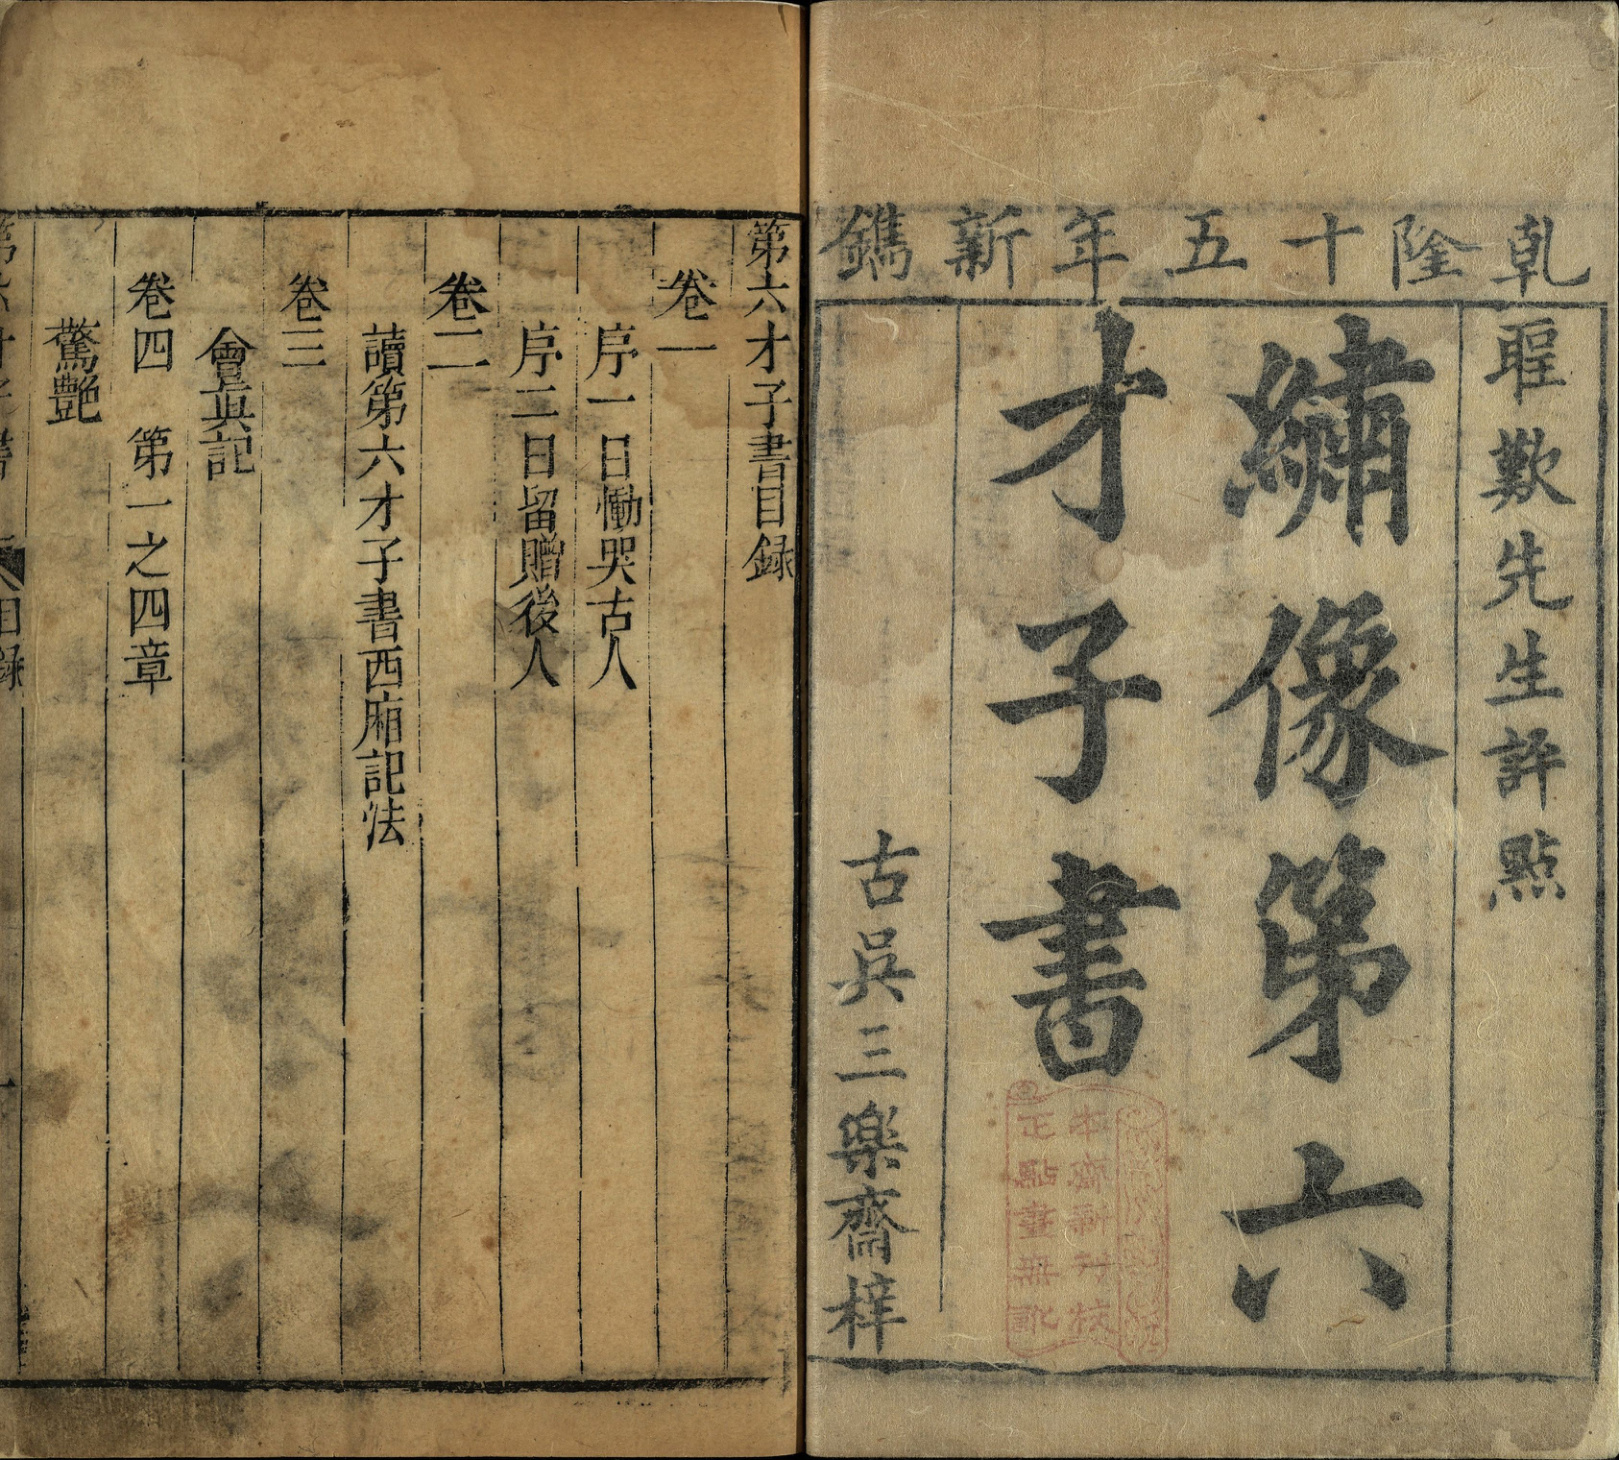 乹隆十五年新鐫
聖歎先生評點
繡像第六
才子書
古吳三樂齋梓
本齋新刊校
正點畫無訛
第六才子書目録
卷一
序一曰慟哭古人
序二曰留贈後人
卷二
讀第六才子書西廂記法
卷三
會真記
卷四 第一之四章
驚艷